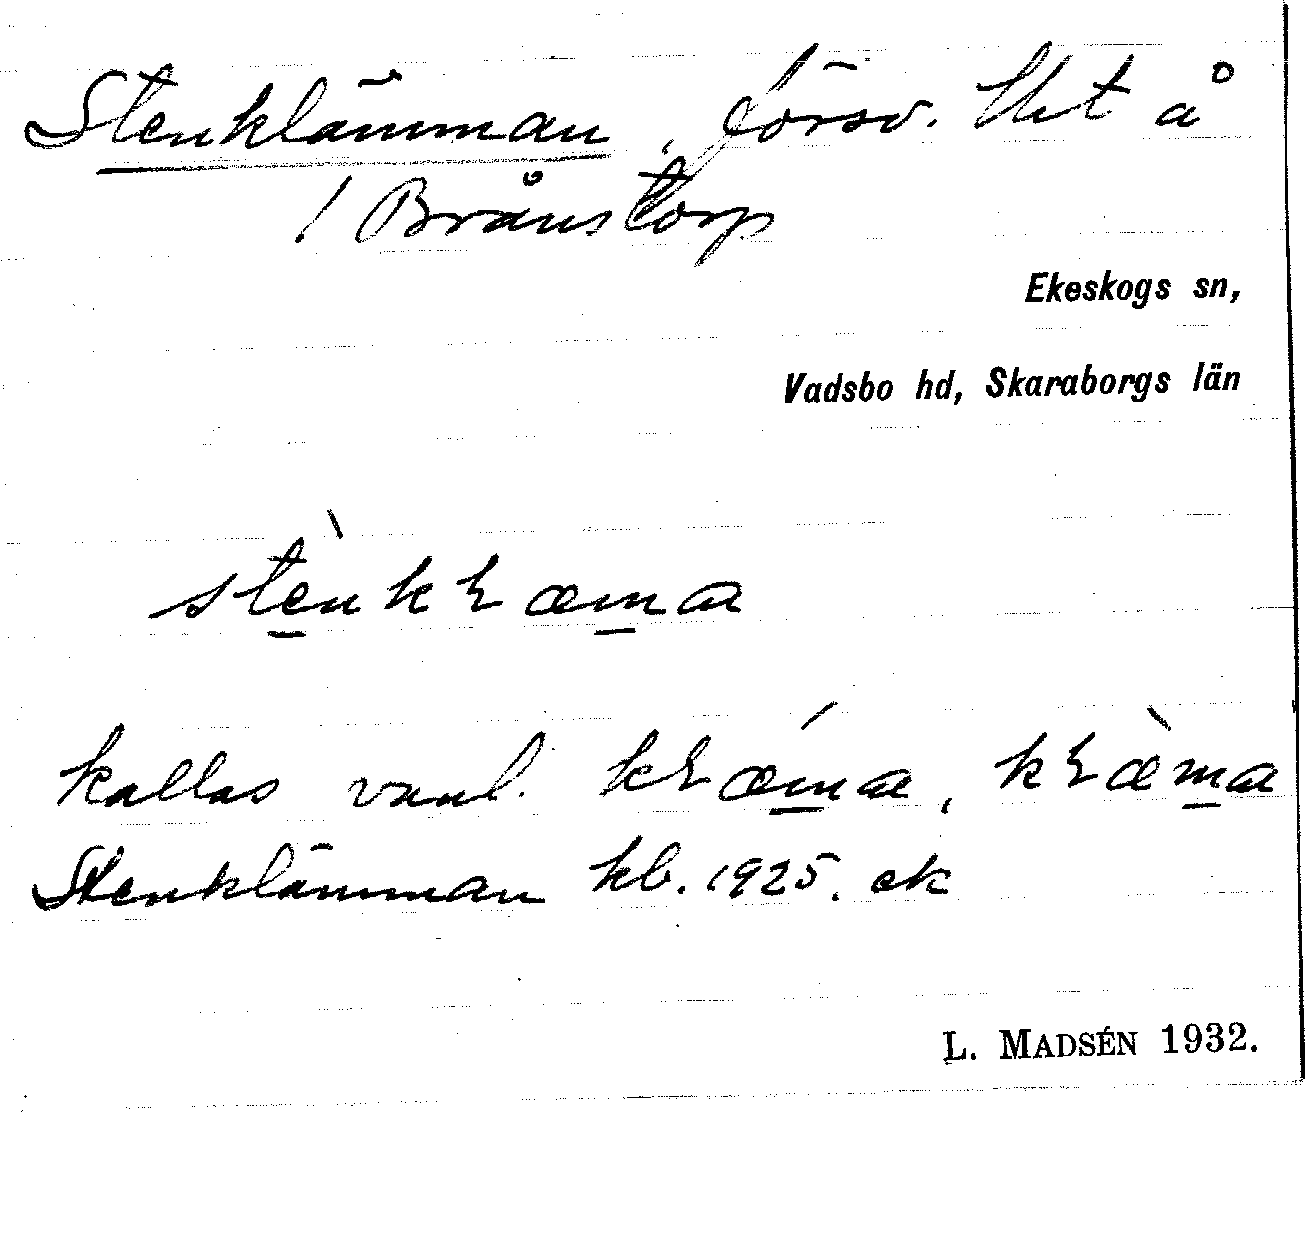 Stenklämman, försv. tht å
1 Brånstorp
Ekeskogs sn,
Vadsbo hd, Skaraborgs län
stènkɫæma
kallas vanl. kɫǽma, kɫæ̀ma
Stenklämman kb. 1925. ek
L. MADSÉN 1932.